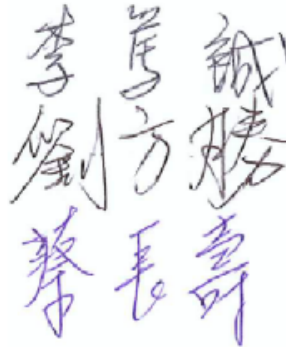 李篤誠
劉方勝
蔡長壽